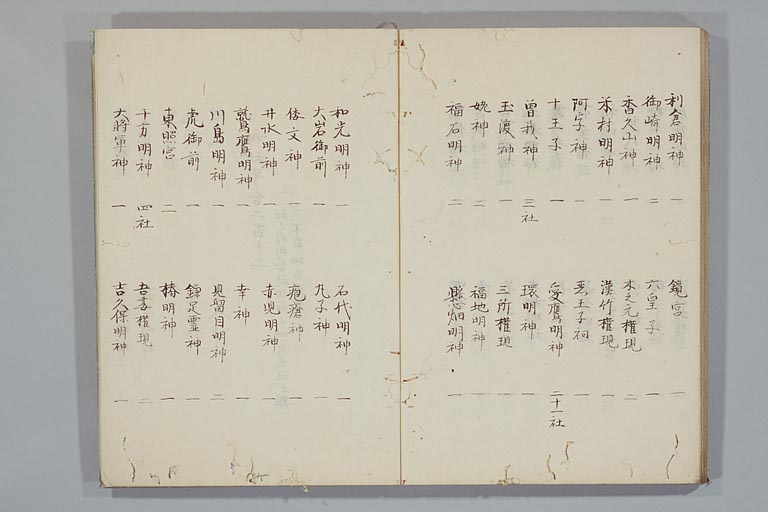 利倉明神 一
御崎明神 二
香久山神 一
米村明神 一
阿字神 一
十王子 一
曽我神 三社
玉渡神 一
姥神 二
福石明神 二
鏡宮 一
六皇子 一
木之元權現 二
漢竹權現 一
悪王子祠 一
愛鷹明神 二十一社
環明神 一
三所權現 一
福地明神 一
懸畑明神 一
和光明神 一
大岩御前 一
倭文神 一
井水明神 一
鷲鷹明神 一
川島明神 一
虎御前 一
東照宮 二
十方明神 四社
大將軍神 一
石代明神 一
九子神 一
疱瘡神 一
赤児明神 一
幸神 一
見留目明神 二
鎌足霊神 一
椿明神 一
吾妻權現 二
吉久保明神 一